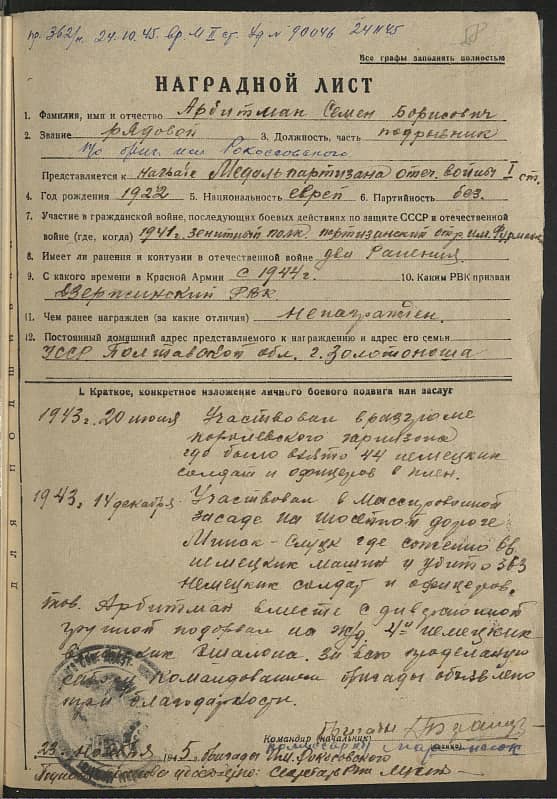 пр. 362/н 24.10.45. вр. М II ст. Уд № 90046 24 XI 45
Все графы заполнять полностью
НАГРАДНОЙ ЛИСТ
1. Фамилия, имя и отчество Арбитман Семен Борисович
2. Звание рядовой 3. Должность, часть подрывник
п/о бриг. им. Рокоссовского
Представляется к награде Медаль партизана отеч. войны I ст.
4. Год рождения 1922 5. Национальность еврей 6. Партийность без.
7. Участие в гражданской войне, последующих боевых действиях по защите СССР в отечественной
войне (где, когда) 1941г. зенитный полк. партизанский отр. им. Фурман
8. Имеет ли ранения и контузии в отечественной войне два ранения.
9. С какого времени в Красной Армии с 1944г. 10. Каким РВК призван
Дзержинский РВК
11. Чем ранее награжден (за какие отличия) ненагражден.
12. Постоянный домашний адрес представляемого к награждению и адрес его семьи
УССР Полтавской обл. г. Золотоноша
для подшивки
I. Краткое, конкретное изложение личного боевого подвига или заслуг
1943г. 20 июня Участвовал в разгроме
королевского гарнизона
где было взято 44 немецких
солдат и офицеров в плен.
1943г. 14 декабря Участвовал в массированной
засаде на шоссейной дороге
Минск-Слуцк где сожжено
немецких машин и убито 383
немецких солдат и офицеров.
тов. Арбитман вместе с диверсионной
группой подорвал на ж/д 4 немецких
эшалона. За всю проделаную
Командованием бригады объявлено
три благодарности.
Командир (начальник)
23 ноября 1945 бригады им. Рокосовского